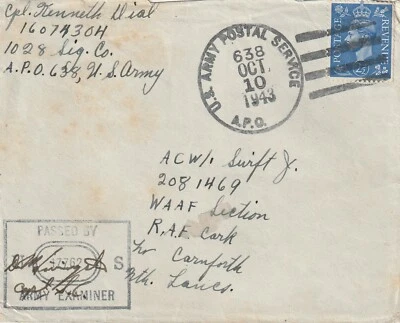 Cpl. Kenneth Dial
16074304
1028 Sig. Co.
A.P.O. 638, U.S. Army
U.S. ARMY POSTAL SERVICE
638
OCT.
10
1943
A.P.O.
POSTAGE
REVENUE
ACW/1 Swift J.
2081469
WAAF Section
R.A.F. Cark
Carnforth
Nth. Lancs.
PASSED BY
S
ARMY EXAMINER